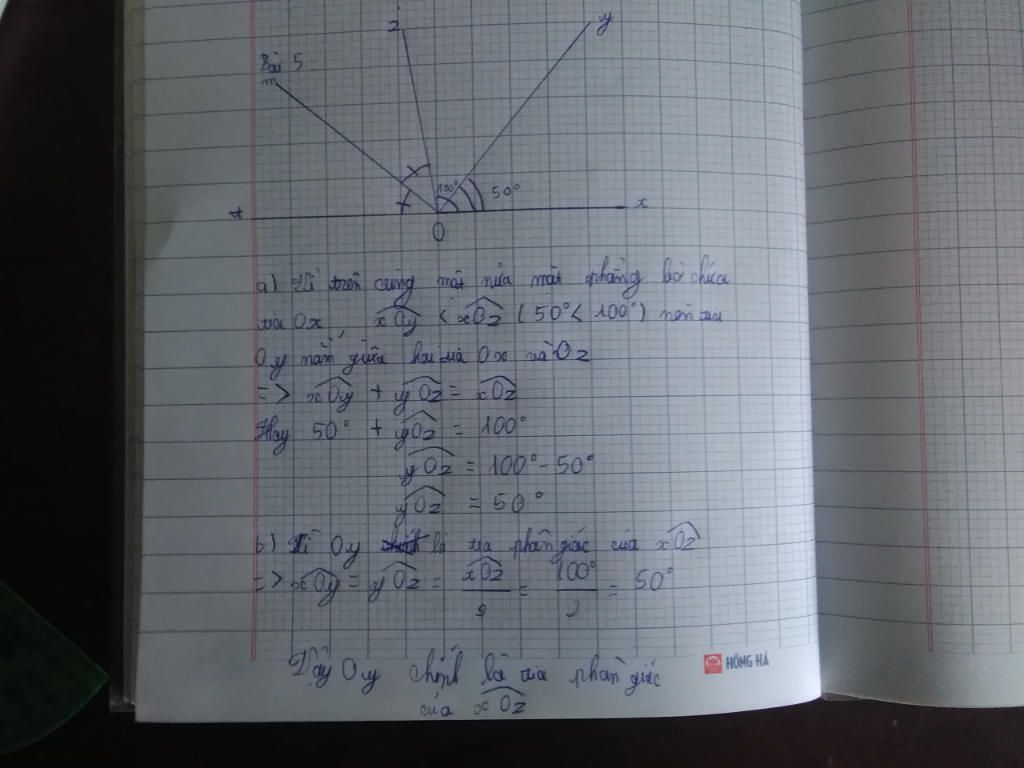 z
y
Bài 5:
m
100°
50°
t
x
O
a) Vì trên cùng một nửa mặt phẳng bờ chứa
tia Ox, xOy < xOz (50° < 100°) nên tia
Oy nằm giữa hai tia Ox và Oz
=> xOy + yOz = xOz
Hay 50° + yOz = 100°
yOz = 100° - 50°
yOz = 50°
b) Vì Oy là tia phân giác của xOz
=> xOy = yOz = xOz/2 = 100°/2 = 50°
Vậy Oy chính là tia phân giác
của xOz
HỒNG HÀ